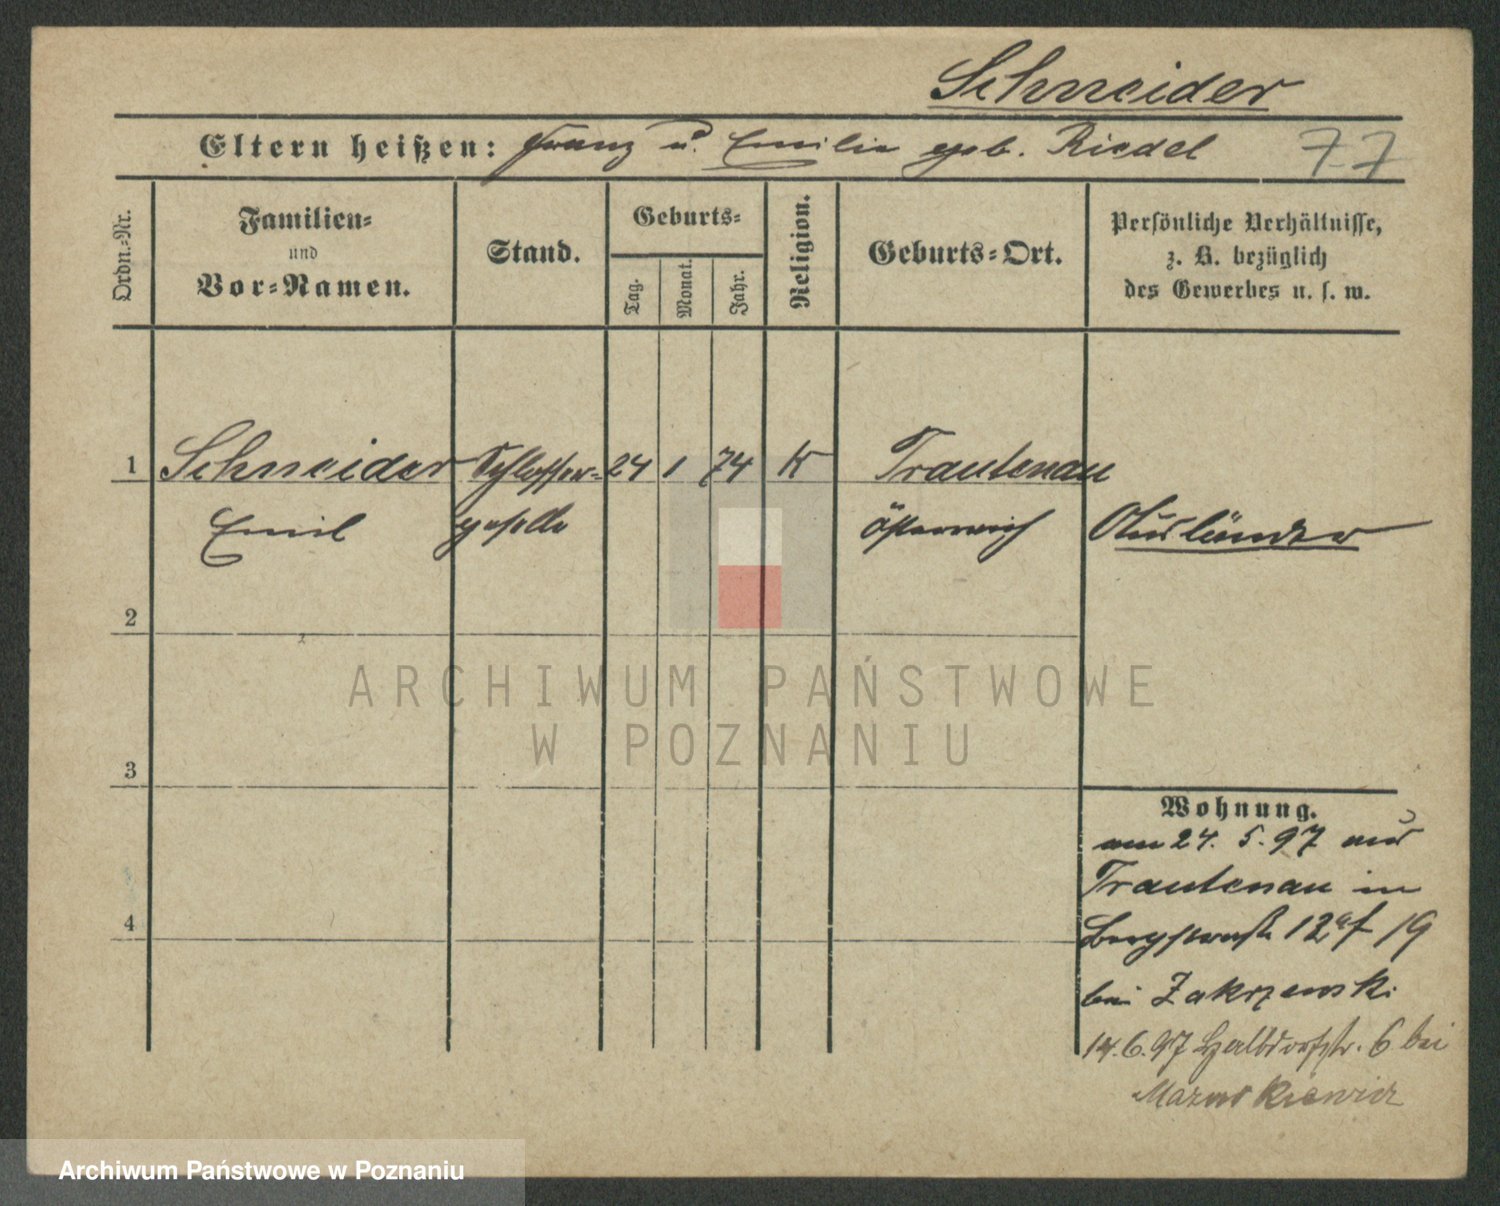 Schneider
Eltern heißen: Franz u. Emilie geb. Riedel
77
Ordn.-Nr.
Familien-
und
Vor-Namen.
Stand.
Geburts-
Tag.
Monat.
Jahr.
Religion.
Geburts-Ort.
Persönliche Verhältnisse,
z. B. bezüglich
des Gewerbes u. s. w.
1 Schneider Schlosser- 24 1 74 K Trautenau
Emil geselle Österreich Ausländer
2
3
4
ARCHIWUM PAŃSTWOWE
W POZNANIU
Wohnung.
am 24. 5. 97 aus
Trautenau in
Bergstraße 12a 19
bei Zakrzewski
14. 6. 97 Halbdorfstr. 6 bei
Mazurkiewicz
Archiwum Państwowe w Poznaniu